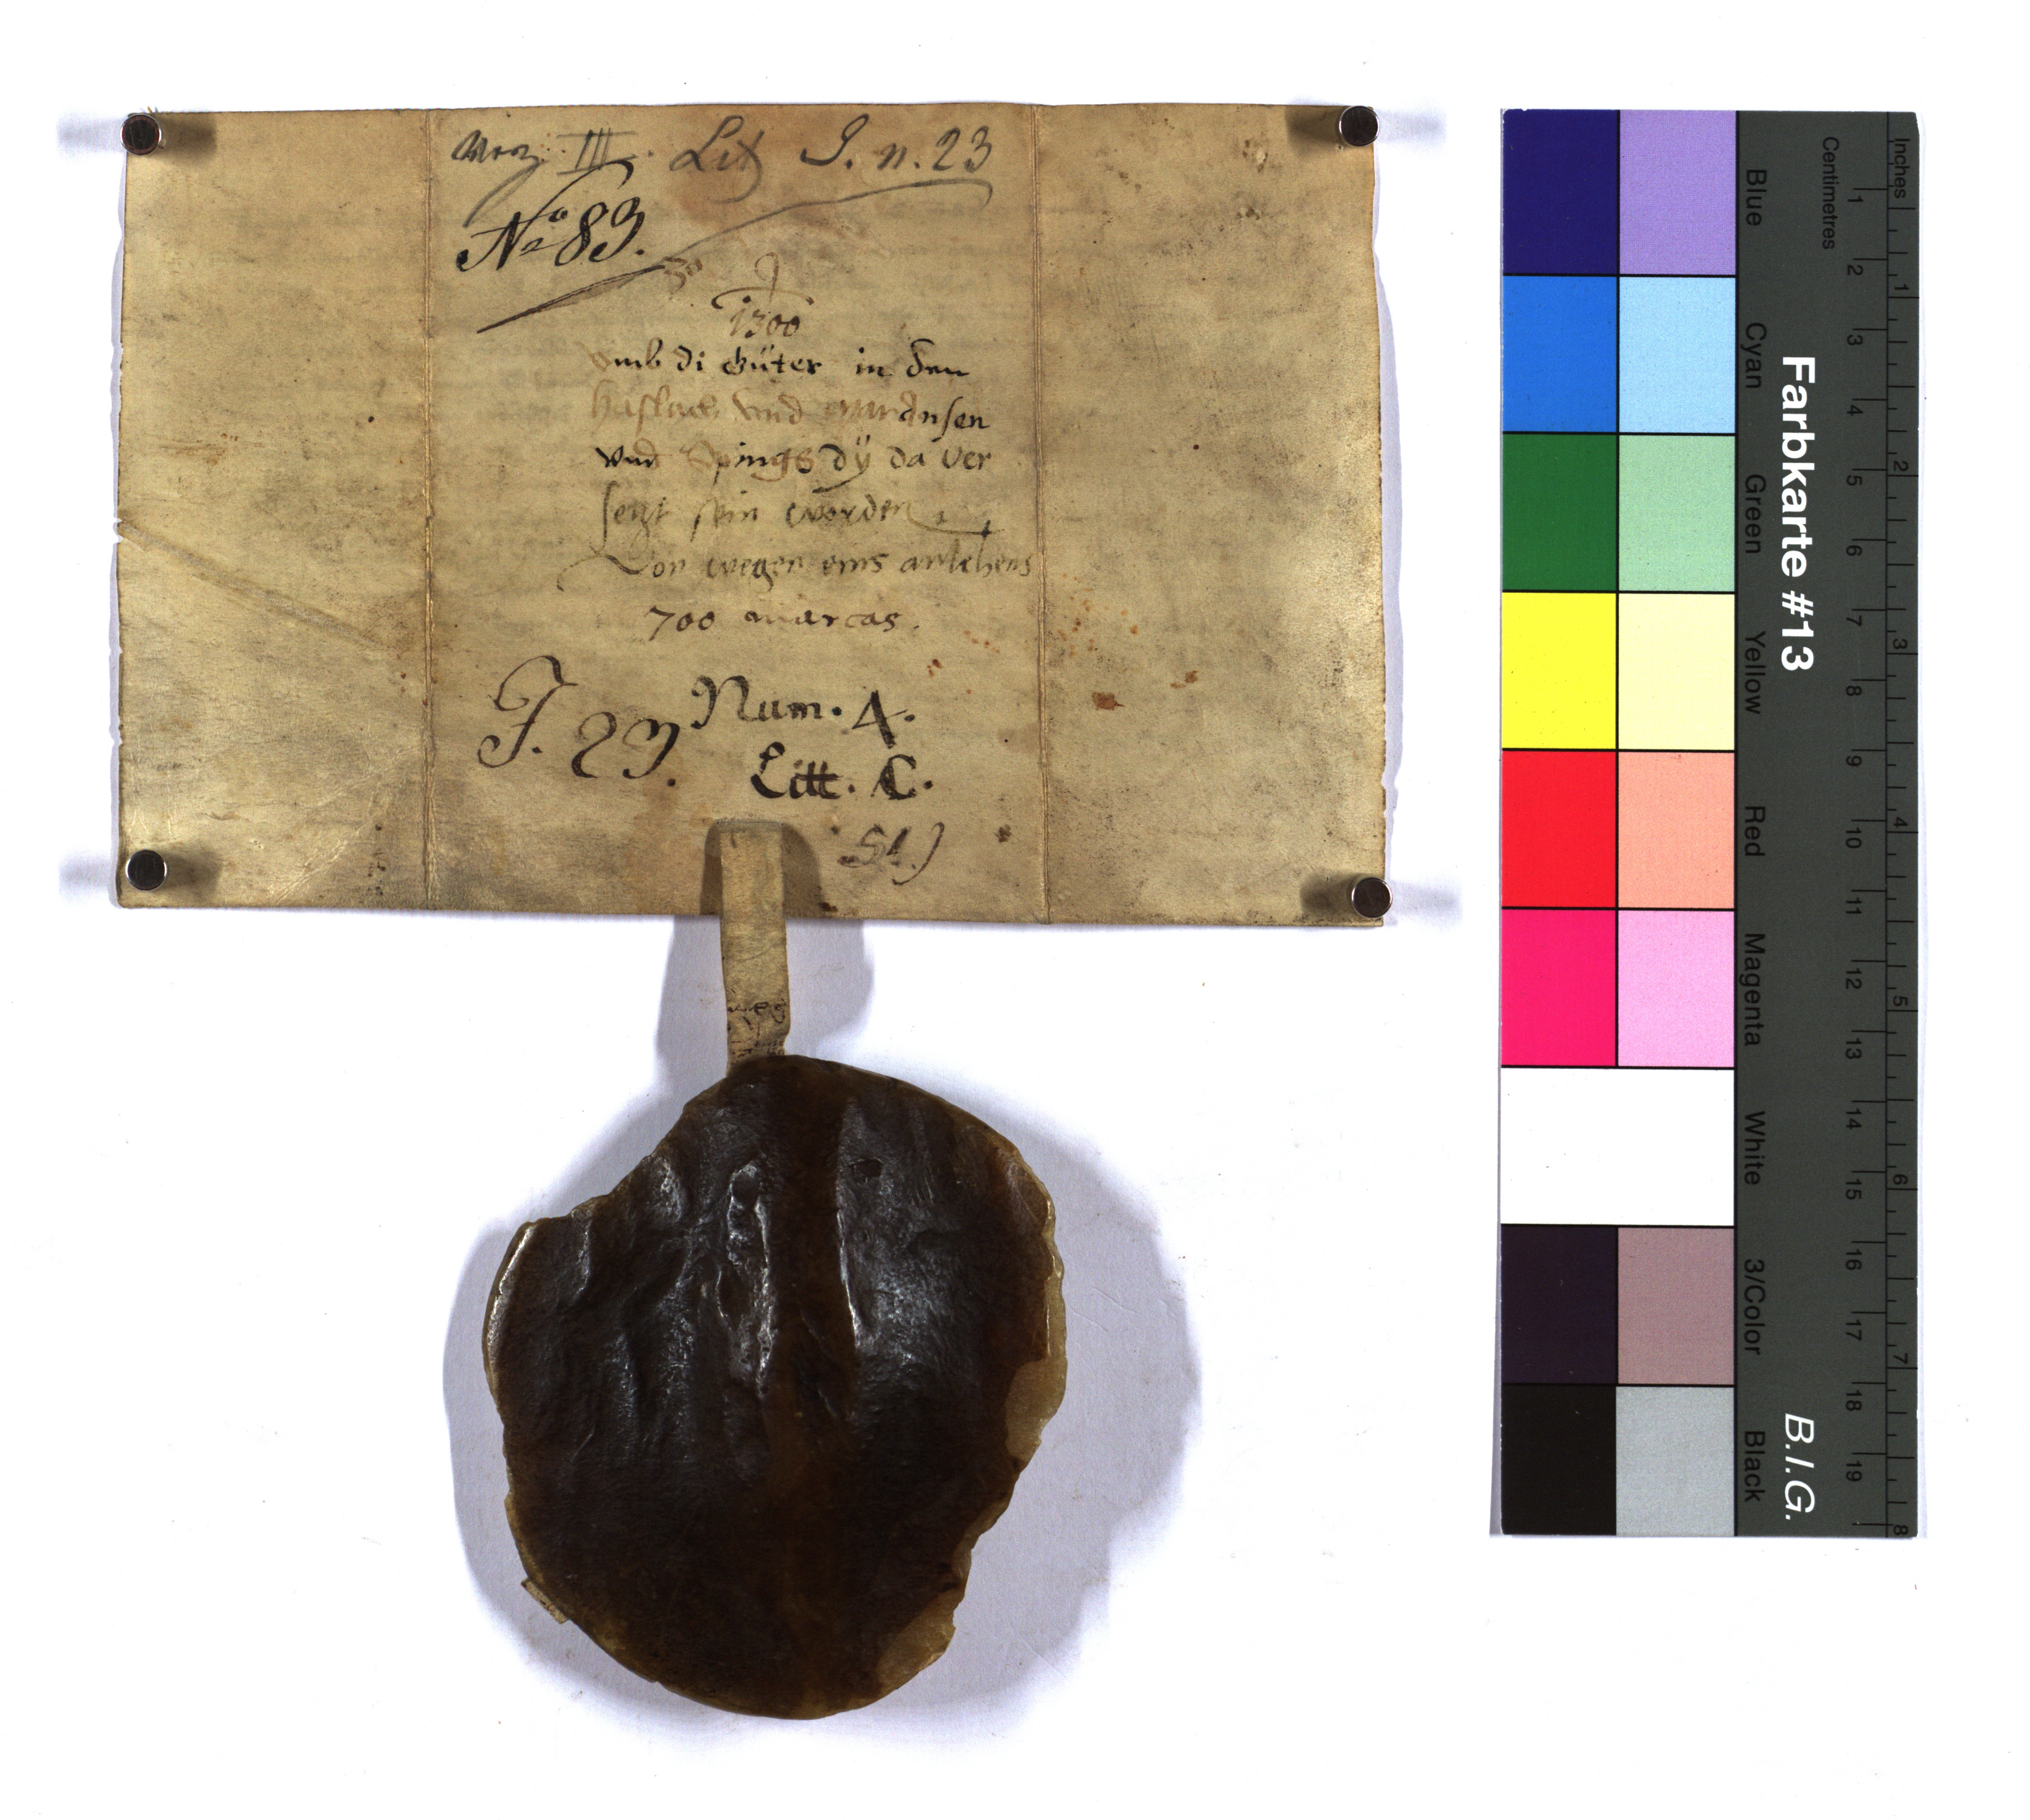 III. Lit J. n. 23
No 83.
J
1300
vmb di Güter in den
vnd
vnd Spings dÿ da ver
seczt sein worden
Von wegen eins anlehens
700 marcas.
J. 23.
Num. 4.
Litt. C.
51.)
Farbkarte #13
B.I.G.
Centimetres
Inches
1 2 3 4 5 6 7 8 9 10 11 12 13 14 15 16 17 18 19
1 2 3 4 5 6 7 8
Blue
Cyan
Green
Yellow
Red
Magenta
White
3/Color
Black